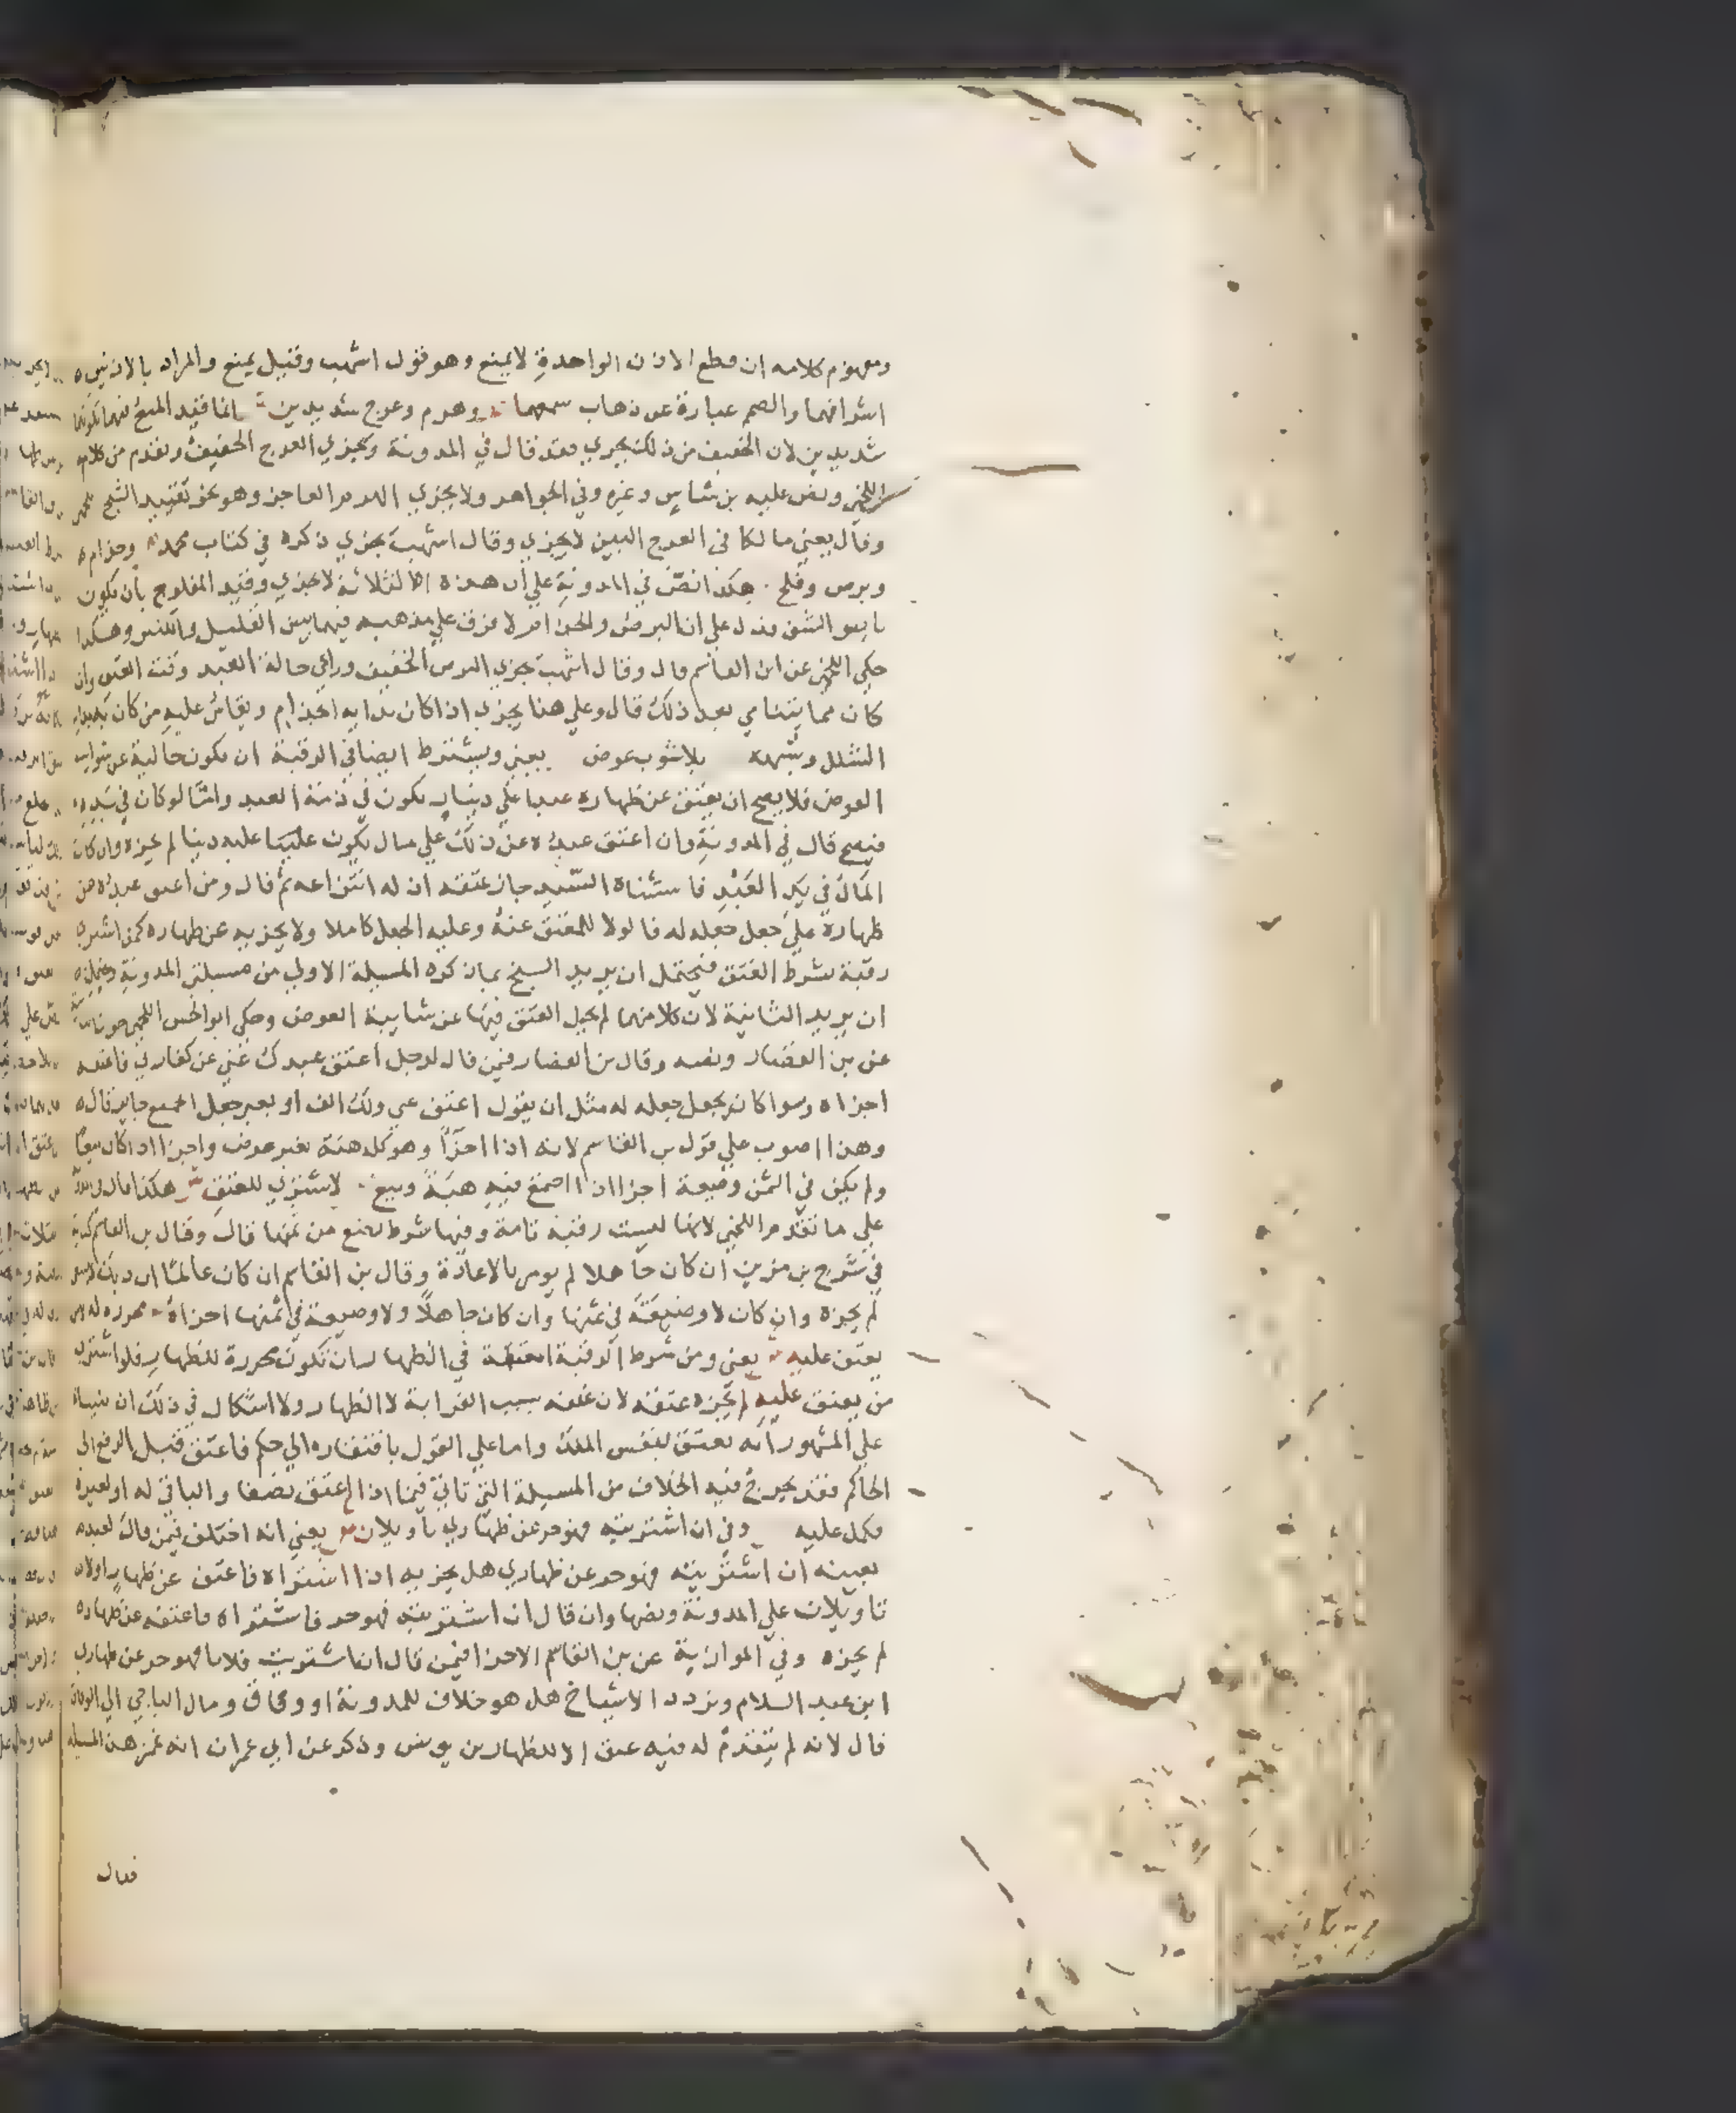 ومفهوم كلامه ان قطع الاذن الواحدة لا يمنع وهو قول اشهب وقيل يمنع والمراد بالاذنين
اشرافهما والصمم عبارة عن ذهاب سمعهما وهرم وعرج شديدين انما قيد المنع فيهما بكونهما
شديدين لان الخفيف من ذلك يجزي فقد قال في المدونة ويجزي العرج الخفيف وتقدم من كلام
اللخمي ونص عليه بن شاس وغيره وفي الجواهر ولا يجزي الهرم العاجز وهو نحو تقييد الشيخ
وقال يعني مالكا في العرج البين لا يجزي وقال اشهب يجزي ذكره في كتاب محمد وجذام
وبرص وفلج هكذا نص في المدونة علي أن هذه الثلاثة لا تجزي وقيد المفلوج بان يكون
يابس الشق فدل علي ان البرص والجذام لا فرق علي مذهبه فيهما بين القليل والكثير وهكذا
حكي اللخمي عن ابن القاسم قال وقال اشهب يجزي البرص الخفيف وراعي حالة العبد وقت العتق وان
كان مما يتنامي بعد ذلك قال وعلي هذا يجزي اذا كان بدا به الجذام ويقاس عليه من كان
الشلل وشبهه بلا شوب عوض يعني ويشترط ايضا في الرقبة ان تكون خالية عن شوايب
العوض فلا يصح ان يعتق عن ظهاره عبدا علي دينار يكون في ذمة العبد واما لو كان في يده
فيصح قال في المدونة وان اعتق عبده عن ذلك علي مال يكون عليه دينا لم يجزه وان كان
المال في يد العبد فاستثناه السيد جاز عتقه ان له انتزاعه ثم قال ومن اعتق عبده عن
ظهاره علي جعل جعله له فالولا للمعتق عنه وعليه الجعل كاملا ولا يجزيه عن ظهاره كمن اشتري
رقبة بشرط العتق فيحتمل ان يريد الشيخ بما ذكره المسيلة الاولي من مسيلتي المدونة ويحتمل
ان يريد الثانية لان كلا منهما لم يخل العتق فيها عن شايبة العوض وحكي ابو الحسن اللخمي
عن بن القصار ونصه وقال بن القصار فيمن قال لرجل اعتق عبدك عني عن كفارتي فاعتقه
اجزاه وسوا كان بجعل جعله له مثل ان يقول اعتق عني ولك الف او بغير جعل الجميع جايز قال
وهذا اصوب علي قول بن القاسم لانه اذا اجزا وهو كله هبة بغير عوض واجزا اذا كان بيعا
ولم يكن في الثمن وضيعة اجزا اذا اجتمع فيه هبة وبيع لا مشتري للعتق هكذا قال
علي ما تقدم اللخمي لانها ليست رقبة تامة وفيها شرط يضع من ثمنها قال وقال بن القاسم
في شرح بن مزين ان كان جاهلا لم يومر بالاعادة وقال بن القاسم ان كان عالما ان ذلك
لم يجزه وان كان لا وضيعة في ثمنها وان كان جاهلا ولا وضيعة في ثمنها اجزاه محررة له
يعتق عليه يعني ومن شرط الرقبة المعتقة في الظهار ان تكون محررة للظهار فلو اشتري
من يعتق عليه لم يجزه عتقه لان عتقه بسبب القرابة لا الظهار ولا اشكال في ذلك ان
علي المشهور انه يعتق بنفس الملك واما علي القول بافتقاره الي حكم فاعتق قبل الرفع الي
الحاكم فقد يخرج فيه الخلاف من المسيلة التي تاتي فيما اذا اعتق نصفا والباقي له او لغيره
فكمل عليه وفي ان اشتريته فهو حر عن ظهاري تاويلان يعني انه اختلف فيمن قال لعبد
بعينه ان اشتريته فهو حر عن ظهاري هل يجزيه اذا اشتراه فاعتق عن ظهار اولا
تاويلان علي المدونة ونصها وان قال ان اشتريته فهو حر فاشتراه فاعتقه عن ظهاره
لم يجزه وفي الموازية عن بن القاسم الاجزا فيمن قال ان اشتريت فلانا فهو حر عن ظهاري
ابن عبد السلام وتردد الاشياخ هل هو خلاف للمدونة او وفاق ومال الباجي الي الوفاق
قال لانه لم يتقدم له فيه عتق الا للظهار بن يونس وذكر عن ابي عمران انه غمز هذه المسيلة
فقال